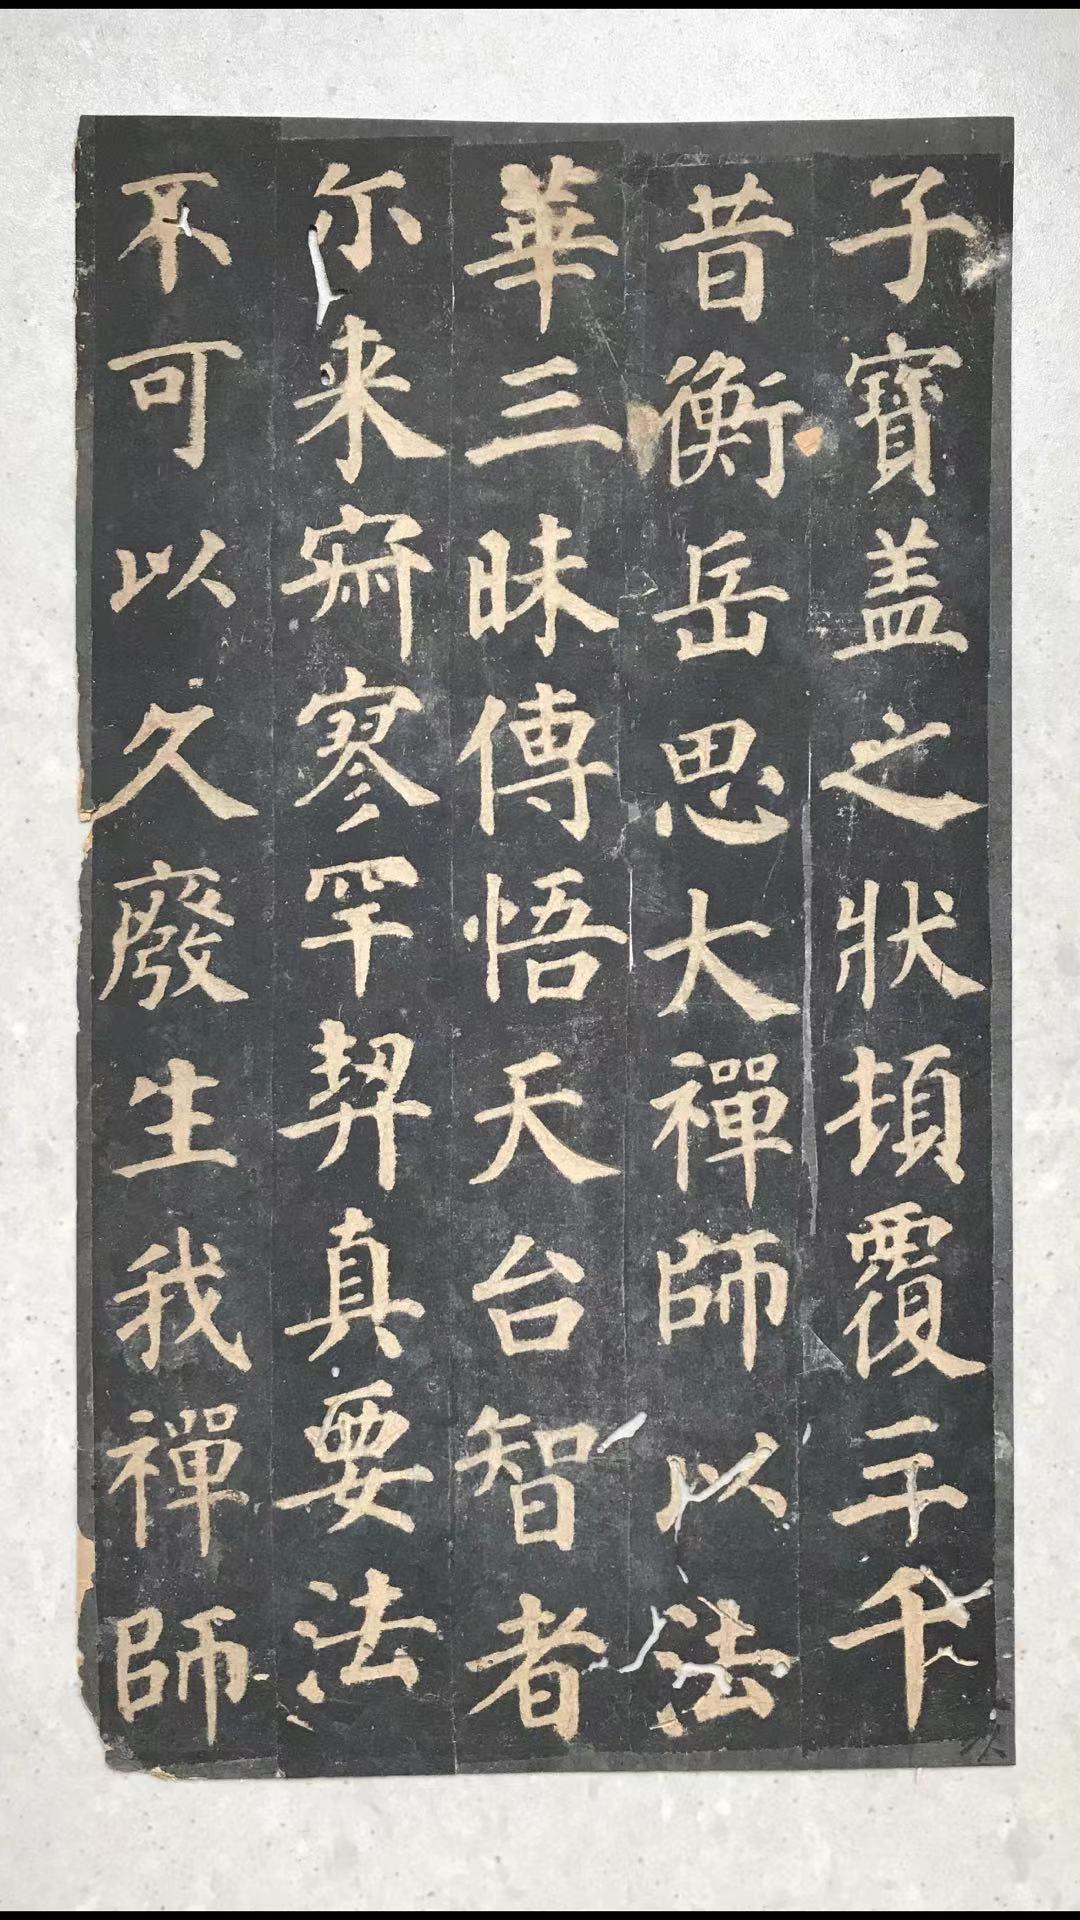 子寶盖之狀頓覆三千
昔衡岳思大禪師以法
華三昧傳悟天台智者
尔来寂寥罕契真要法
不可以久廢生我禪師